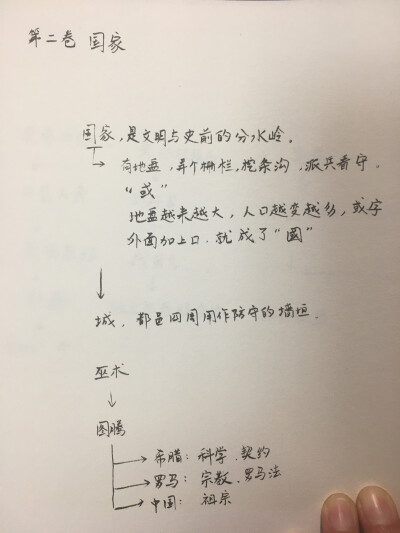 第二卷 国家
国家,是文明与史前的分水岭。
有地盘,弄个栅栏,挖条沟,派兵看守。
“或”
地盘越来越大,人口越变越多,或字
外面加上口.就成了“國”
城,都邑四周用作防守的墙垣。
巫术
图腾
希腊:科学.契约
罗马:宗教.罗马法
中国:祖宗